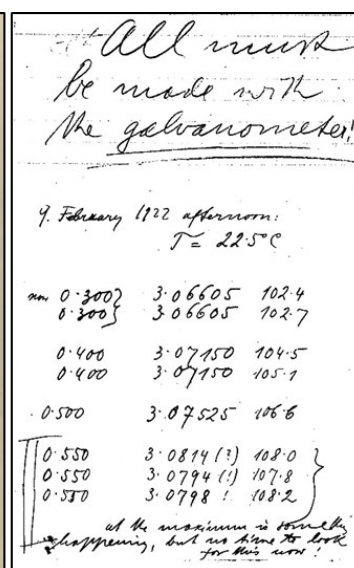 All must
be made with
the galvanometer!
9. February 1922 afternoon:
T = 22.5°C
now 0.300} 3.06605 102.4
0.300} 3.06605 102.7
0.400 3.07150 104.5
0.400 3.07150 105.1
0.500 3.07525 106.6
0.550 3.0814 (?) 108.0
0.550 3.0794 (!) 107.8
0.550 3.0798 ! 108.2
at the maximum is something
happening, but no time to look
for this now!